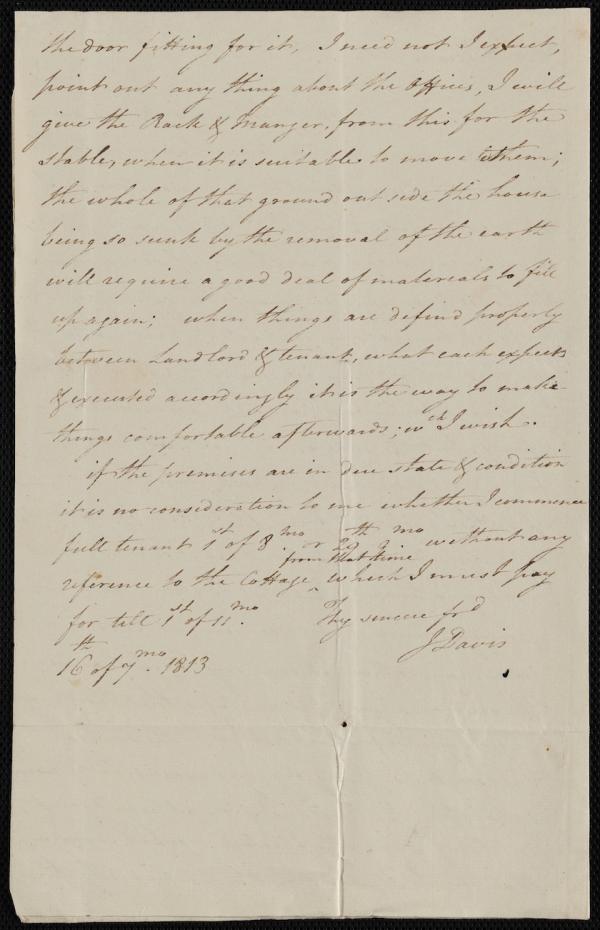 the door fitting for it, I need not I expect,
point out any thing about the Offices, I will
give the Rack & Manger, from this for the
stable, when it is suitable to move them;
the whole of that ground out side the house
being so sunk by the removal of the earth
will require a good deal of materials to fill
up again; when things are defind properly
between Landlord & tenant, what each expects
& executed accordingly it is the way to make
things comfortable afterwards; wch I wish.
if the premises are in due state & condition
it is no consideration to me whether I commence
full tenant 1st of 8mo. or 29th mo without any
from that time
reference to the Cottage which I must pay
for till 1st of 11mo. Thy sincere frd
J Davis
16th of 7mo. 1813